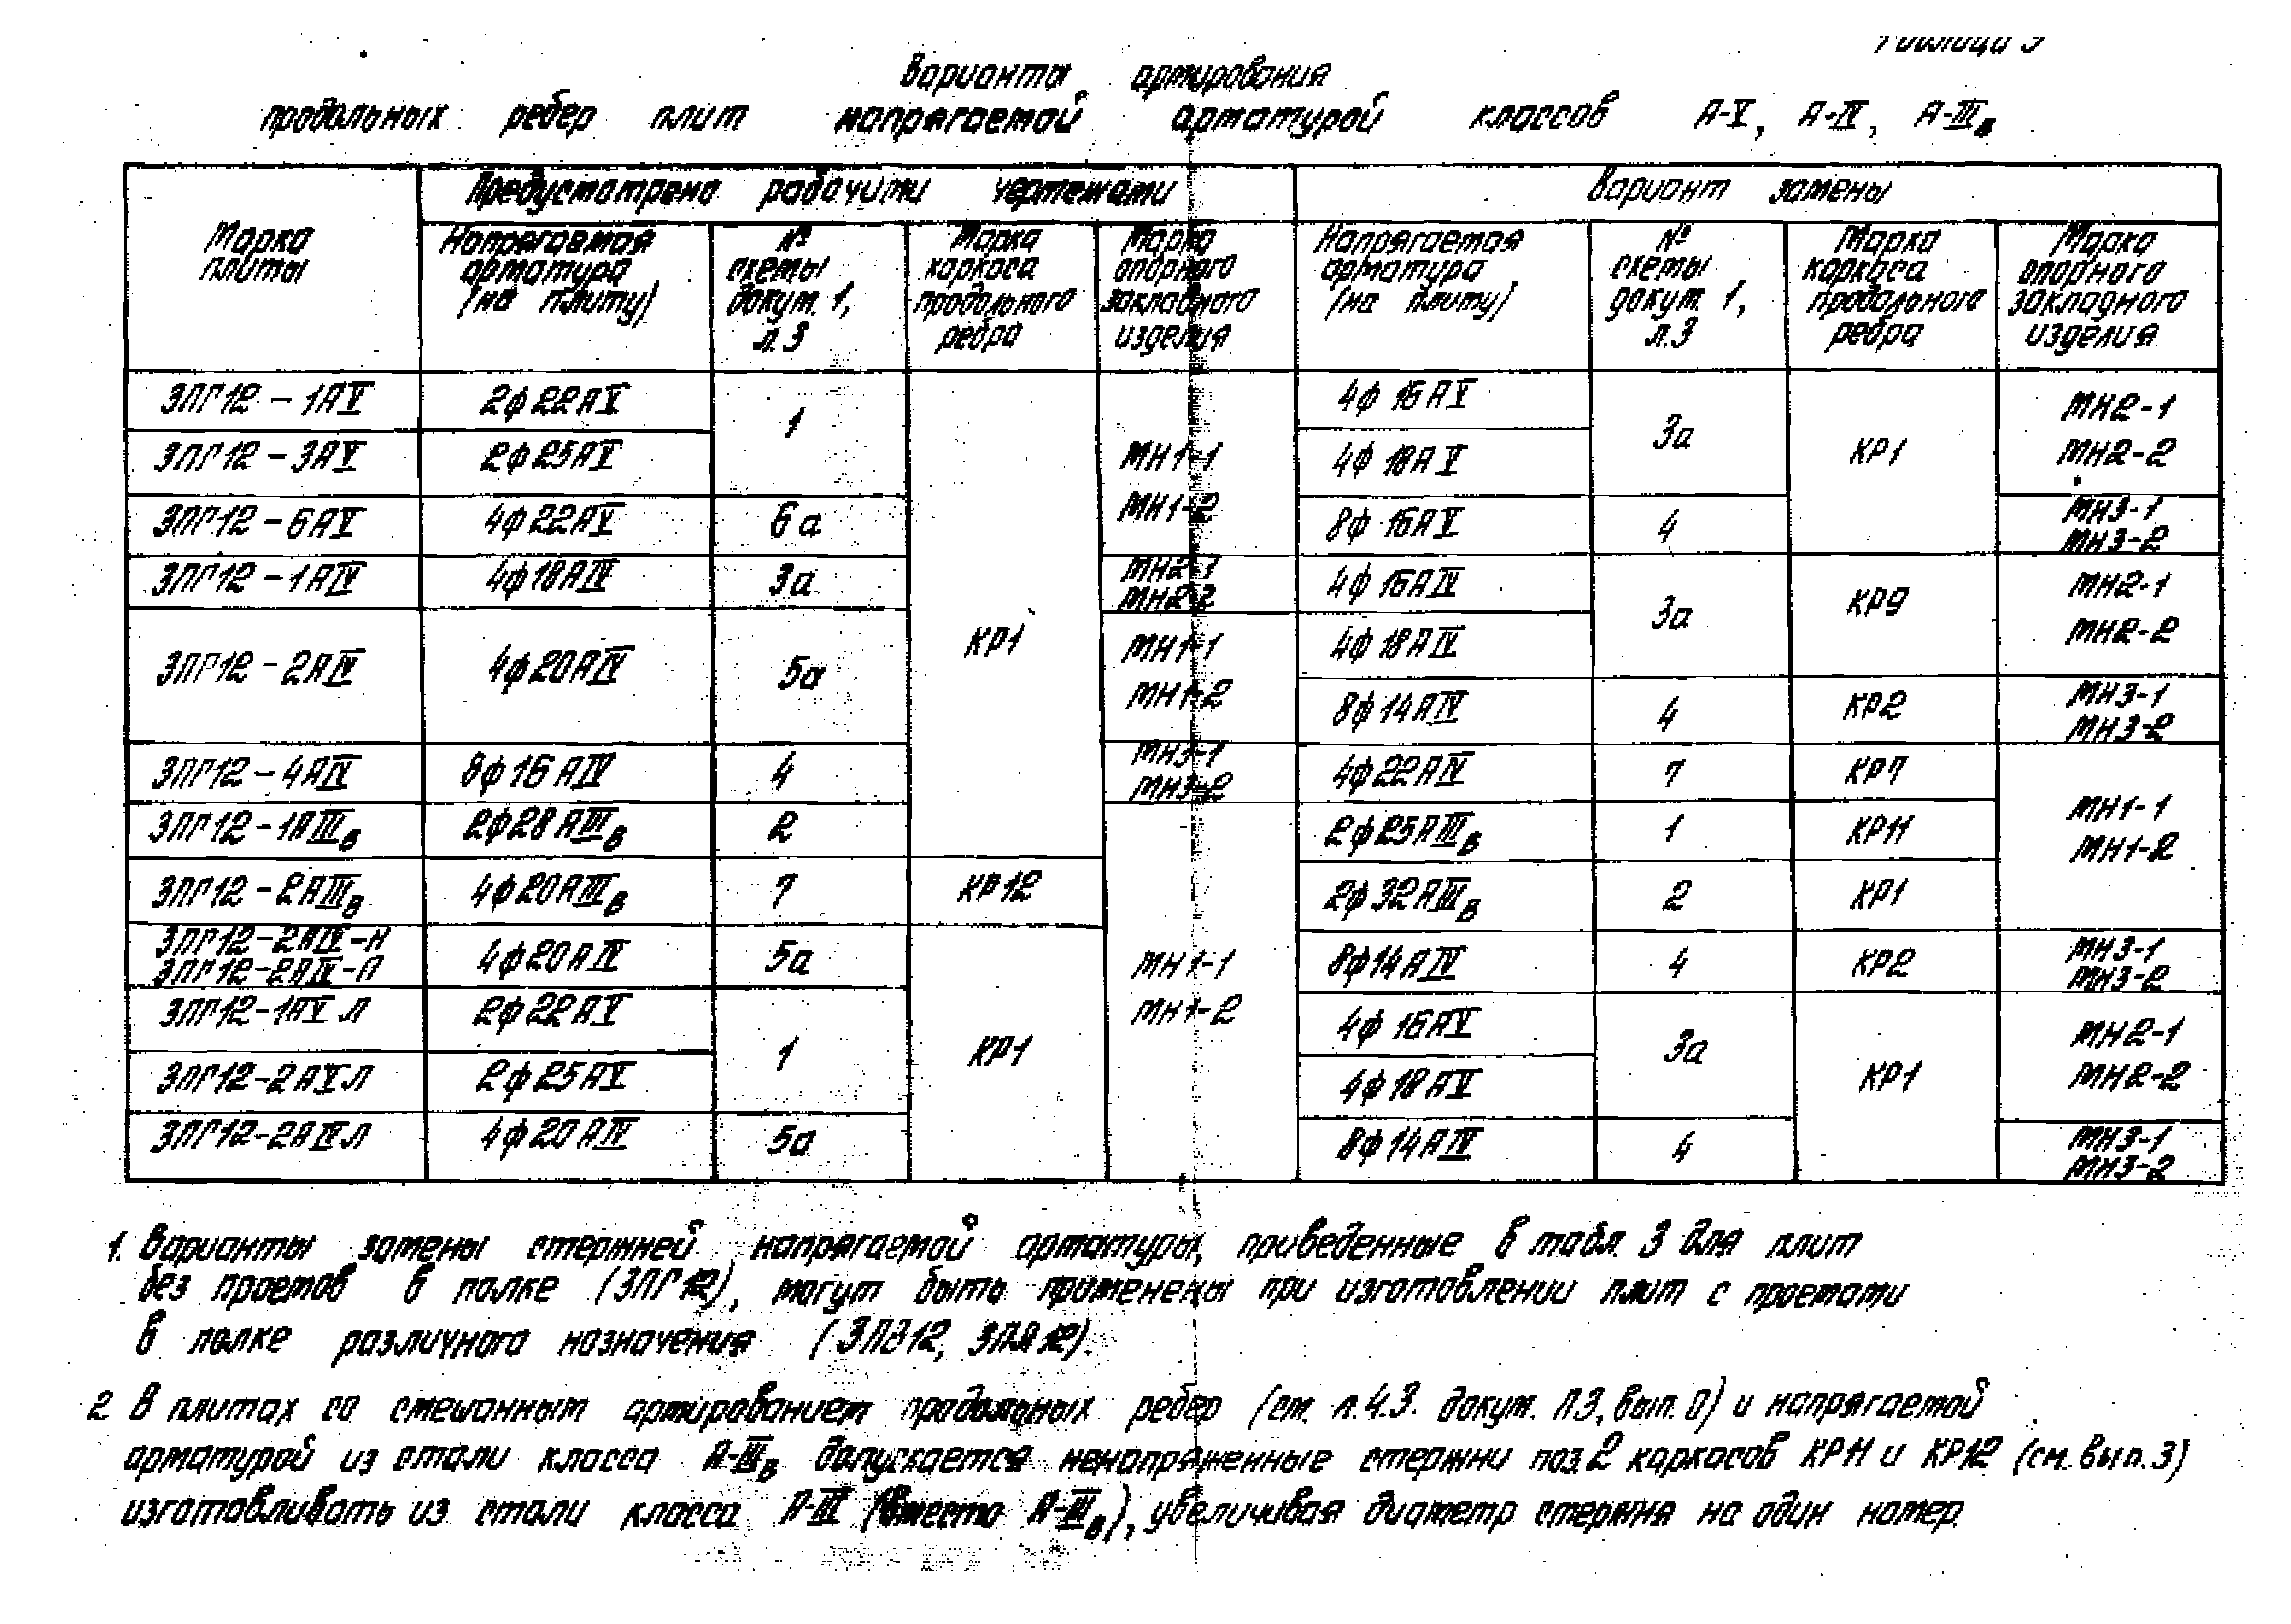 Таблица 3
Варианты армирования
продольных ребер плит напрягаемой арматурой классов А-V, А-IV, А-IIIв
Марка плиты
Предусмотрено рабочими чертежами
Вариант замены
Напрягаемая арматура (на плиту)
№ схемы докум. 1, л.3
Марка каркаса продольного ребра
Марка опорного закладного изделия
Напрягаемая арматура (на плиту)
№ схемы докум. 1, л.3
Марка каркаса продольного ребра
Марка опорного закладного изделия
3ПГ12-1АV 2ф22АV 1 КР1 МН1-1 МН1-2 4ф16АV 3а КР1 МН2-1 МН2-2
3ПГ12-3АV 2ф25АV 4ф18АV
3ПГ12-6АV 4ф22АV 6а 8ф16АV 4 МН3-1 МН3-2
3ПГ12-1АIV 4ф18АIV 3а МН2-1 МН2-2 4ф16АIV 3а КР9 МН2-1 МН2-2
3ПГ12-2АIV 4ф20АIV 5а МН1-1 МН1-2 4ф18АIV
8ф14АIV 4 КР2 МН3-1 МН3-2
3ПГ12-4АIV 8ф16АIV 4 МН3-1 МН3-2 4ф22АIV 7 КР7 МН1-1 МН1-2
3ПГ12-1АIIIв 2ф28АIIIв 2 2ф25АIIIв 1 КР11
3ПГ12-2АIIIв 4ф20АIIIв 7 КР12 2ф32АIIIв 2 КР1
3ПГ12-2АIV-Н 3ПГ12-2АIV-П 4ф20АIV 5а КР1 МН1-1 МН1-2 8ф14АIV 4 КР2 МН3-1 МН3-2
3ПГ12-1АV Л 2ф22АV 1 4ф16АV 3а КР1 МН2-1 МН2-2
3ПГ12-2АV Л 2ф25АV 4ф18АV
3ПГ12-2АIV Л 4ф20АIV 5а 8ф14АIV 4 МН3-1 МН3-2
1. Варианты замены стержней напрягаемой арматуры, приведенные в табл. 3 для плит
без проемов в полке (3ПГ12), могут быть применены при изготовлении плит с проемами
в полке различного назначения (3ПВ12, 3ПЛ12).
2 В плитах со смешанным армированием продольных ребер (см. п.4.3. докум. ПЗ, вып. 0) и напрягаемой
арматурой из стали класса А-IIIв допускается ненапряженные стержни поз.2 каркасов КР11 и КР12 (см. вып.3)
изготавливать из стали класса А-III (вместо А-IIIв), увеличивая диаметр стержня на один номер.